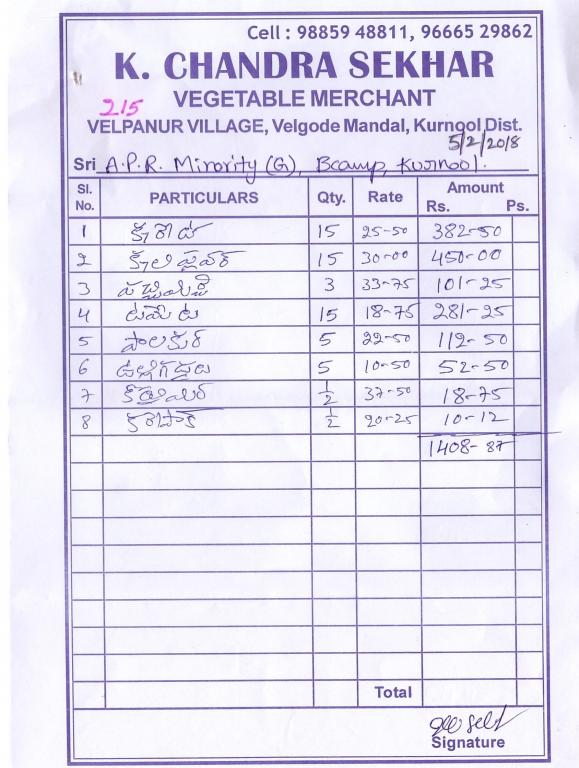 Cell : 98859 48811, 96665 29862
K. CHANDRA SEKHAR
215
VEGETABLE MERCHANT
VELPANUR VILLAGE, Velgode Mandal, Kurnool Dist.
5/2/2018
Sri A.P.R. Minority (G), Bcamp, Kurnool.
Sl. No. PARTICULARS Qty. Rate Amount Rs. Ps.
1 15 25-50 382-50
2 15 30-00 450-00
3 3 33-75 101-25
4 టమేట 15 18-75 281-25
5 పాలకుర 5 22-50 112-50
6 ఉల్లిగడ్డలు 5 10-50 52-50
7 1/2 37-50 18-75
8 1/2 20-25 10-12
1408-87
Total
Signature